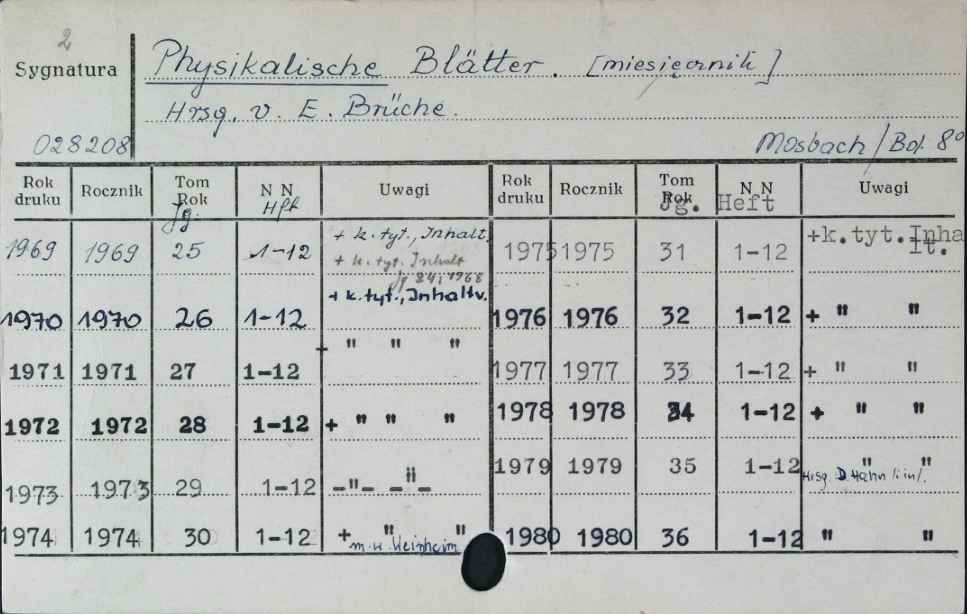 2
Sygnatura
Physikalische Blätter. [miesięcznik]
Hrsg. v. E. Brüche.
028208
Mosbach/Bd. 8°
Rok druku Rocznik Tom Rok Jg. N N Hft Uwagi Rok druku Rocznik Tom Rok Jg. N N Heft Uwagi
1969 1969 25 1-12 + k. tyt., Inhalt, 1975 1975 31 1-12 +k.tyt.Inhalt.
+ k. tyt. Inhalt
Jg 24; 1968
1970 1970 26 1-12 + k.tyt., Inhaltv. 1976 1976 32 1-12 + " "
1971 1971 27 1-12 + " " " 1977 1977 33 1-12 + " "
1972 1972 28 1-12 + " " " 1978 1978 34 1-12 + " "
1973 1973 29 1-12 -"- -"- 1979 1979 35 1-12 " "
Hrsg. D. Hahn i inl.
1974 1974 30 1-12 + " " 1980 1980 36 1-12 " "
m. w. Weinheim